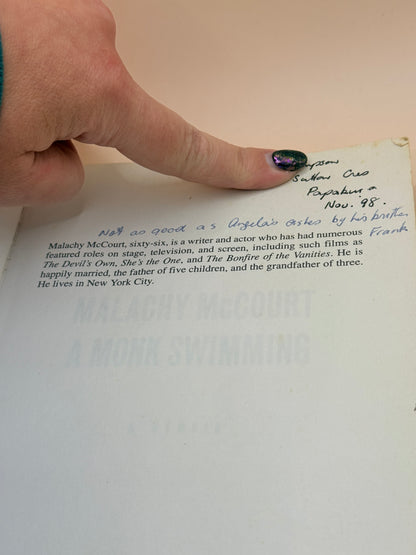 mpson
Sutton Cres
Papakura
Nov. '98.
Not as good as Angela's ashes by his brother
Frank
Malachy McCourt, sixty-six, is a writer and actor who has had numerous
featured roles on stage, television, and screen, including such films as
The Devil's Own, She's the One, and The Bonfire of the Vanities. He is
happily married, the father of five children, and the grandfather of three.
He lives in New York City.
MALACHY MCCOURT
A MONK SWIMMING